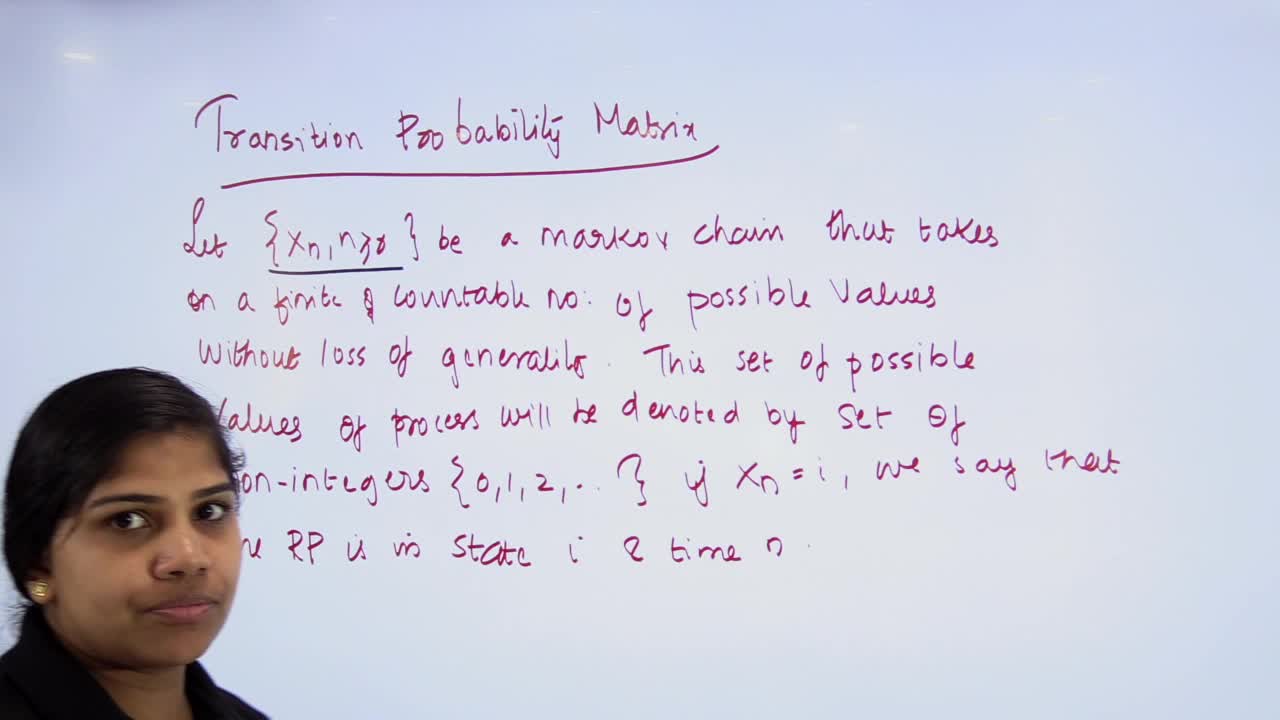 Transition Probability Matrix
Let {Xn, n≥0} be a markov chain that takes
on a finite & countable no: of possible values
without loss of generality. This set of possible
values of process will be denoted by set of
on-integers {0,1,2,..} if Xn = i, we say that
RP is in state i & time n.